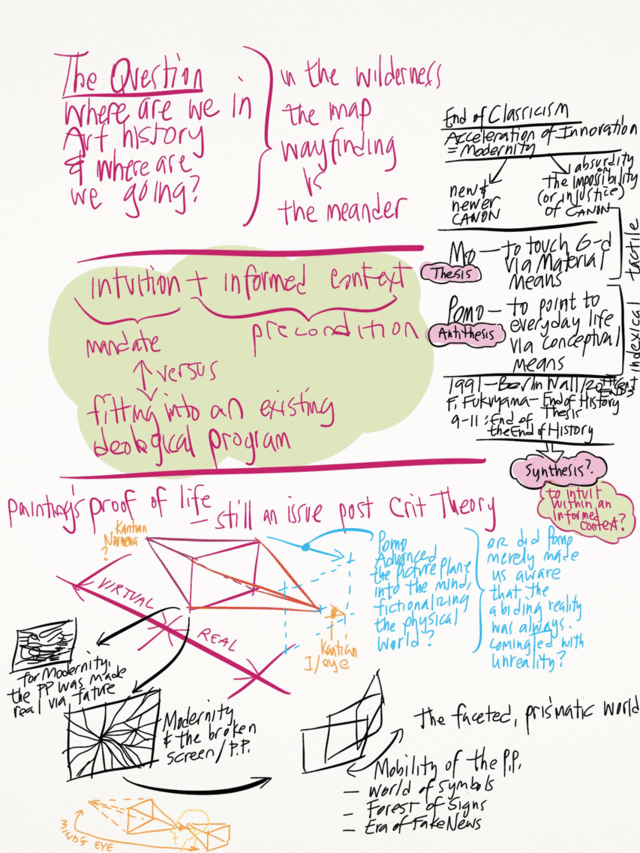 The Question
where are we in
Art history
& where are
we going?
in the wilderness
the map
wayfinding
vs
the meander
End of Classicism
Acceleration of Innovation
= Modernity
new &
newer
CANON
absurdity
or
the impossibility
(or injustice)
of CANON
Mo — to touch G-d
via Material
Means
Thesis
Pomo — to point to
everyday life
via conceptual
means
Antithesis
tactile
indexical
1991 - Berlin Wall/
F. Fukuyama - End of History
Thesis
9-11: End of
the End of History
Synthesis?
to intuit
within an
informed
context?
intuition + informed context
mandate
precondition
versus
fitting into an existing
ideological program
painting's proof of life
— still an issue post Crit Theory
Kantian
Noumena
?
VIRTUAL
REAL
Kantian
I/eye
Pomo
Advanced
the picture plane
into the mind,
fictionalizing
the physical
world?
or did Pomo
merely made
us aware
that the
abiding reality
was always
comingled with
unreality?
for Modernity,
the PP was made
real via facture
Modernity
& the broken
screen/P.P.
The faceted, prismatic world
Mobility of the P.P.
— World of Symbols
— Forest of Signs
— Era of Fake News
MIND'S EYE